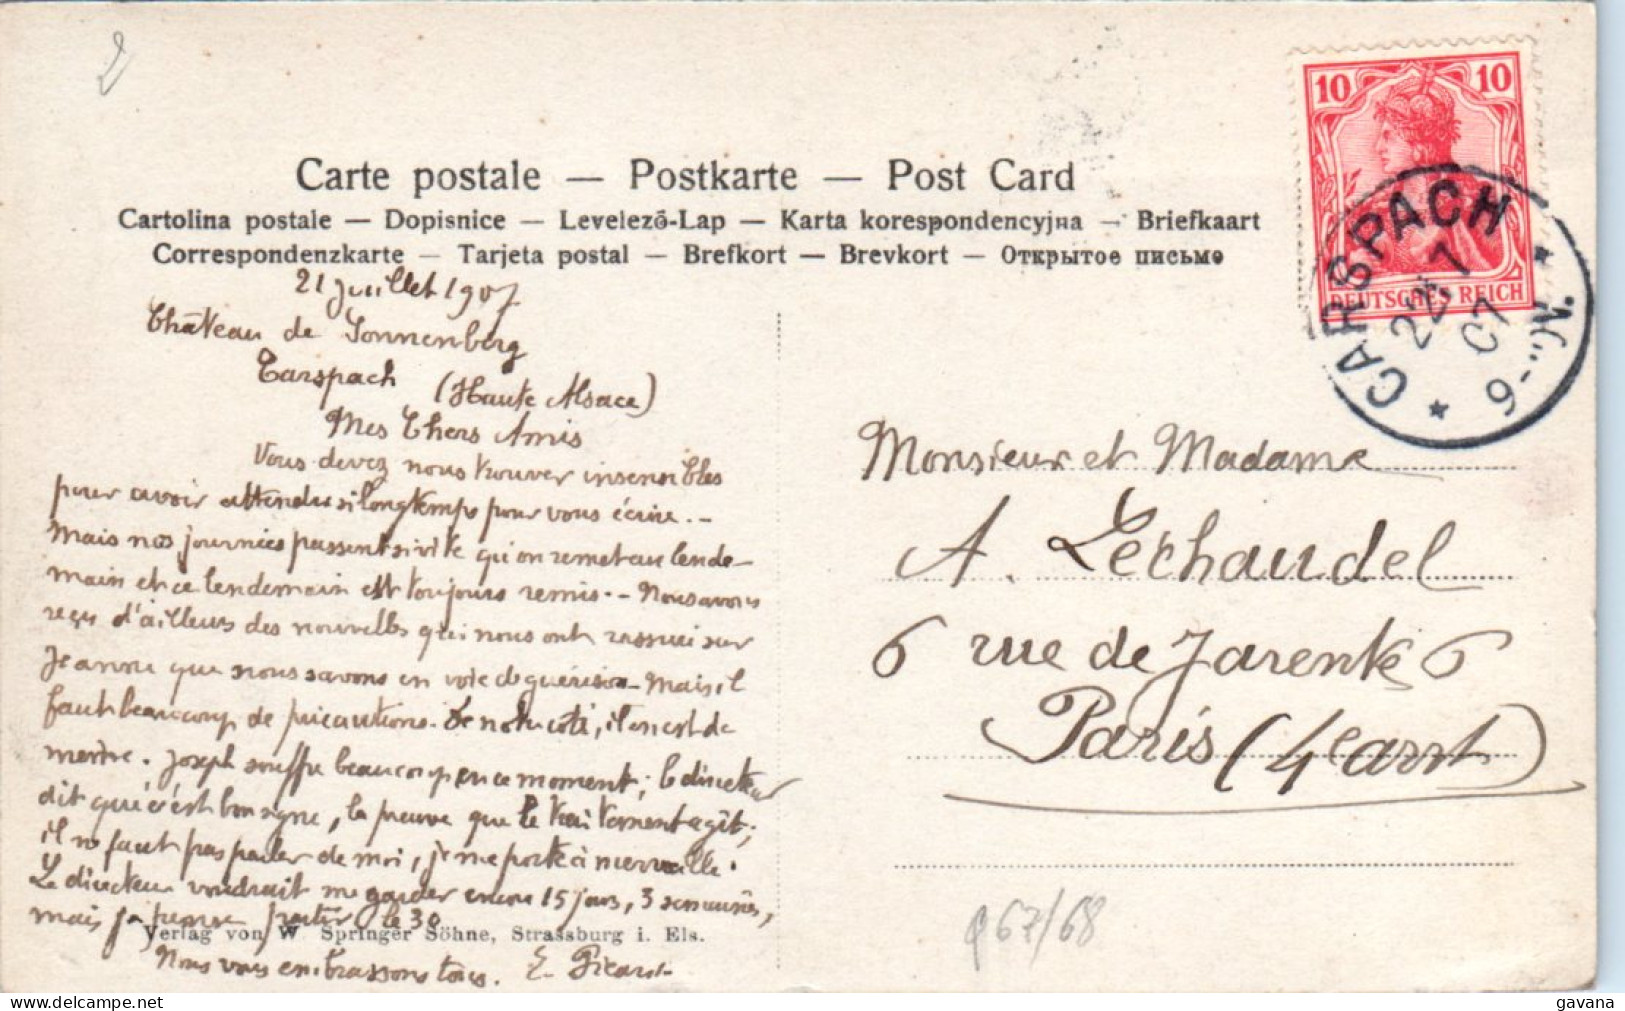 2
10 10
DEUTSCHES REICH
CARSPACH
22 7 07
9-"N.
Carte postale — Postkarte — Post Card
Cartolina postale — Dopisnice — Levelező-Lap — Karta korespondencyjna — Briefkaart
Correspondenzkarte — Tarjeta postal — Brefkort — Brevkort — Открытое письмо
21 Juillet 1907
Château de Sonnenberg
Carspach (Haute Alsace)
Mes Chers Amis
Vous devez nous trouver insensibles
pour avoir attendu si longtemps pour vous écrire. -
Mais nos journées passent si vite qu'on remet au lende-
main et ce lendemain est toujours remis. - Nous avons
reçu d'ailleurs des nouvelles qui nous ont rassuré sur
Jeanne que nous savons en voie de guérison - Mais il
faut beaucoup de précautions. De notre côté, il en est de
même. Joseph souffre beaucoup en ce moment; le directeur
dit que c'est bon signe, la preuve que le traitement agit;
il ne faut pas parler de moi, je me porte à merveille.
Le directeur voudrait me garder encore 15 jours, 3 semaines,
mais je pense partir le 30
Verlag von W Springer Söhne, Strassburg i. Els.
Nous vous embrassons tous. E. Picard
Monsieur et Madame
A. Lechaudel
6 rue de Jarente 6
Paris (4e arrt)
967/68
gavana